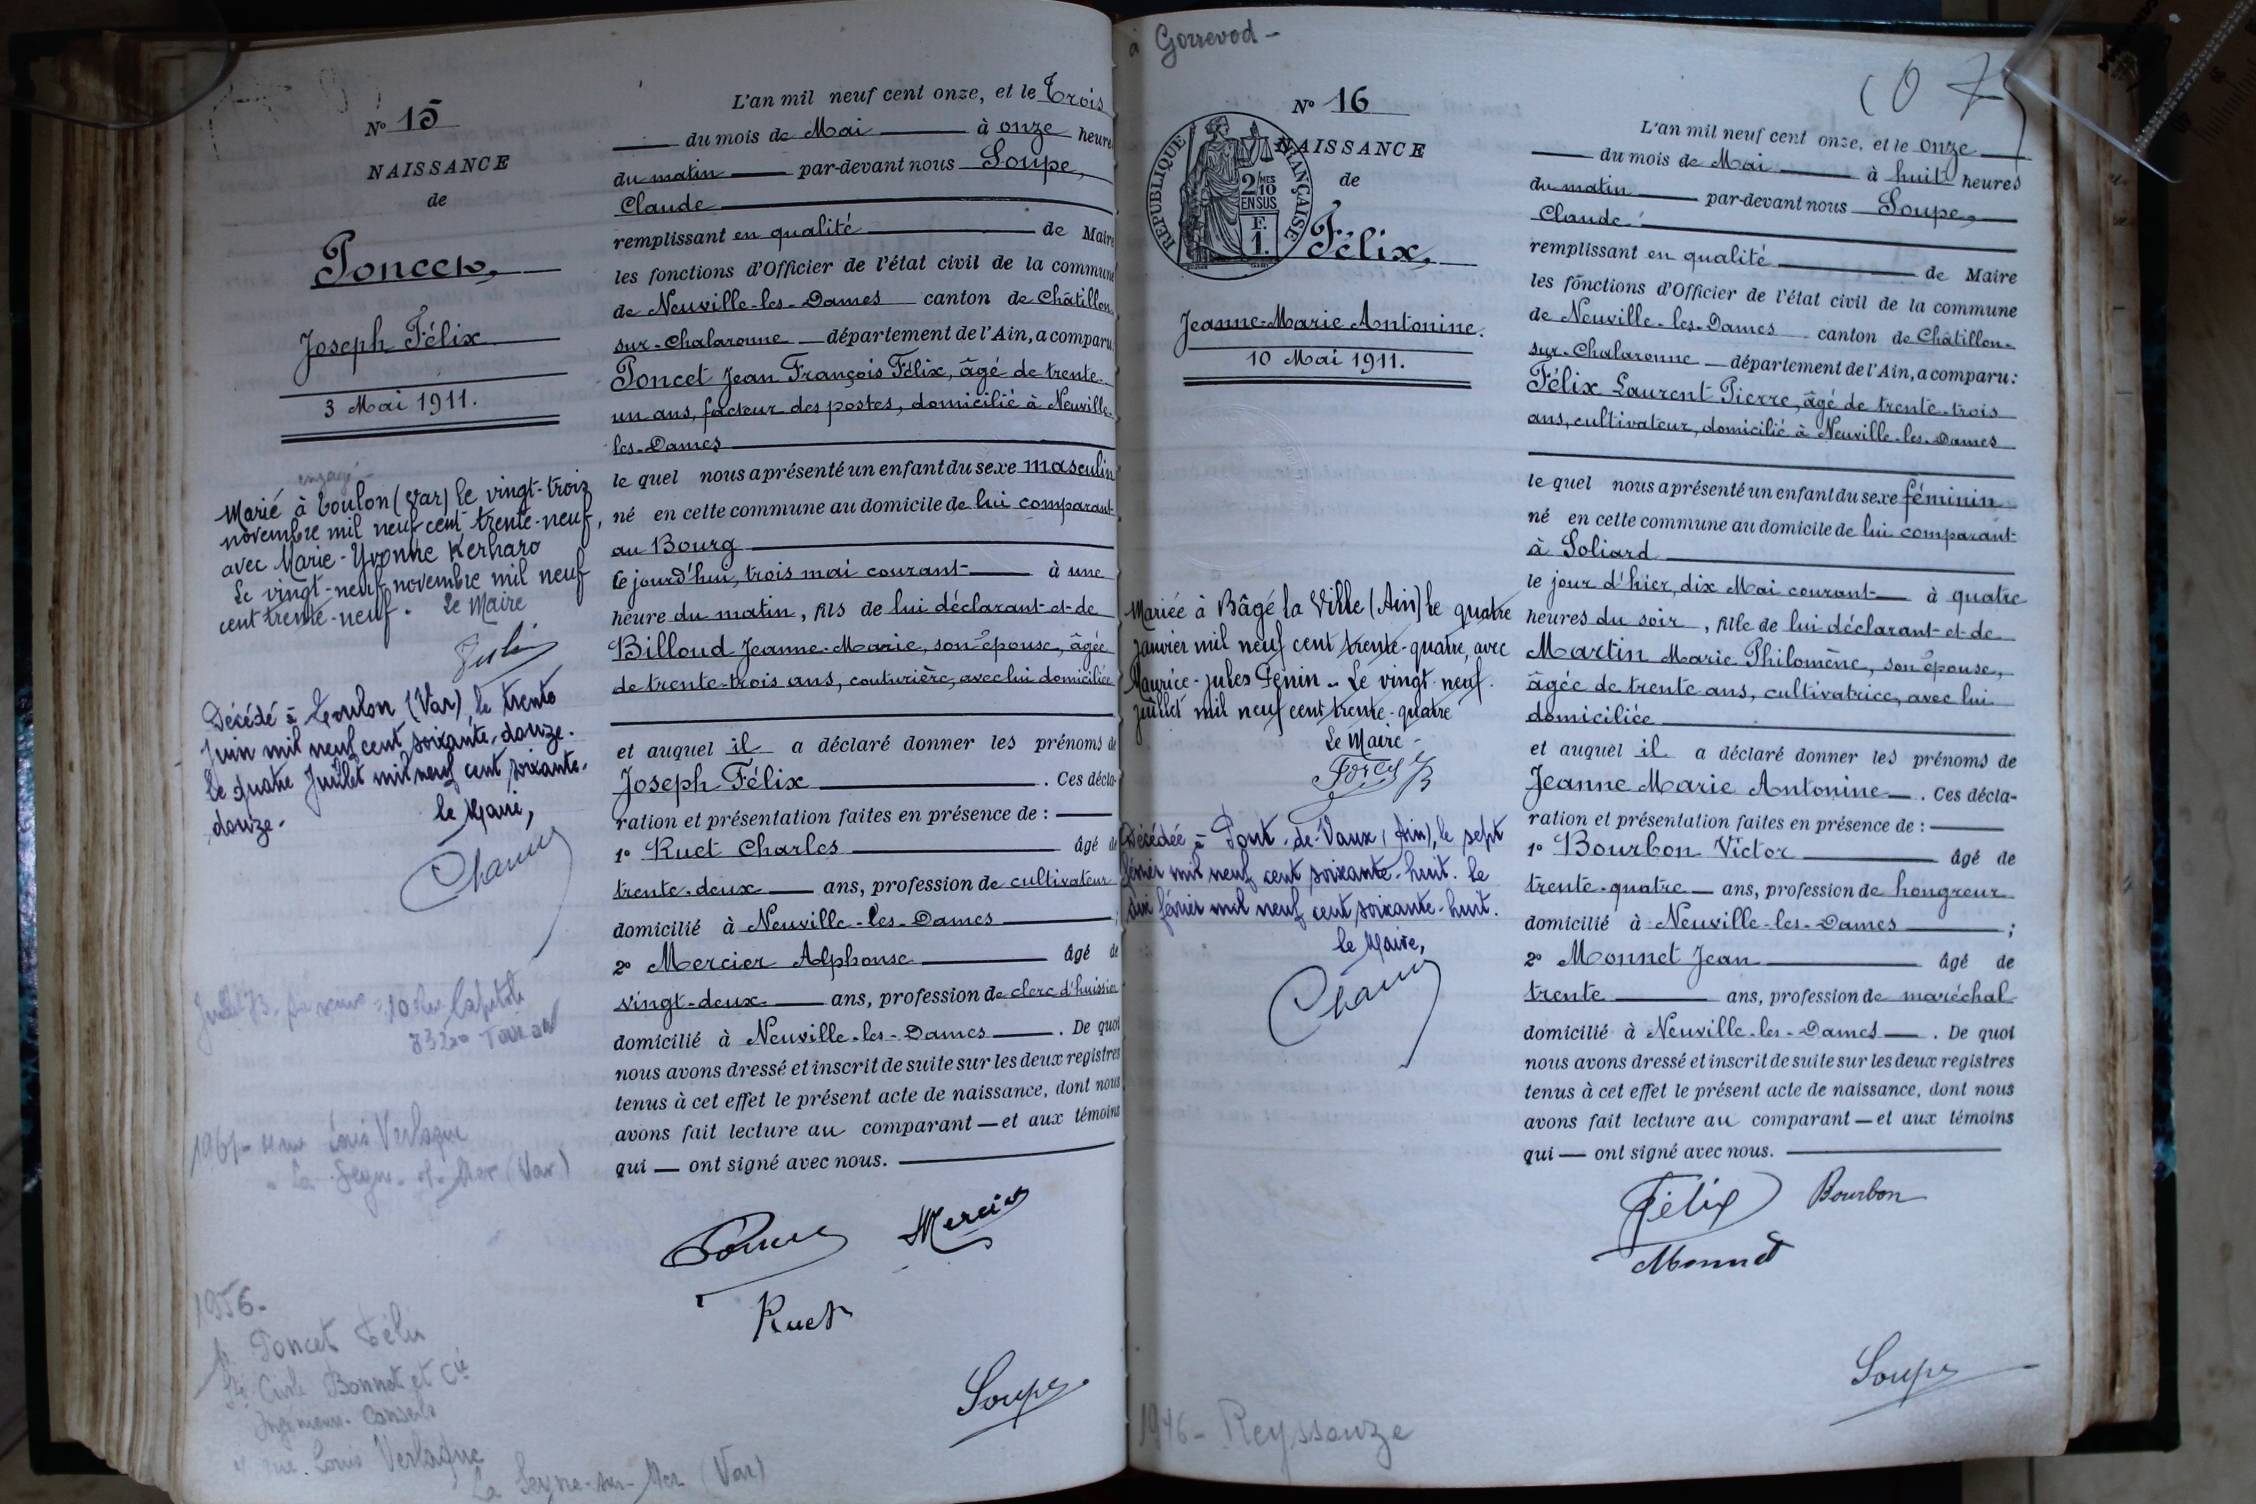 N° 15
NAISSANCE
de
Poncet,
Joseph Félix
3 Mai 1911.
engagé
Marié à Toulon (Var) le vingt-trois
novembre mil neuf cent trente-neuf,
avec Marie-Yvonne Kerharo
Le vingt-neuf novembre mil neuf
cent trente-neuf. Le Maire
Décédé à Toulon (Var) le trente
Juin mil neuf cent soixante-douze.
le quatre Juillet mil neuf cent soixante-
douze.
le Maire,
10 rue
83200 Toulon
Louis Verlaque
La Seyne-s-Mer (Var)
1956-
Poncet Félix
Bonnet et Cie
Ingénieurs-Conseils
rue Louis Verlaque
La Seyne-sur-Mer (Var)
L'an mil neuf cent onze, et le Trois
du mois de Mai à onze heures
du matin par-devant nous Soupe,
Claude
remplissant en qualité de Maire
les fonctions d'Officier de l'état civil de la commune
de Neuville-les-Dames canton de Châtillon-
sur-Chalaronne département de l'Ain, a comparu
Poncet Jean François Félix, âgé de trente-
un ans, facteur des postes, domicilié à Neuville-
les-Dames
le quel nous a présenté un enfant du sexe masculin
né en cette commune au domicile de lui comparant
au Bourg
le jourd'hui, trois mai courant à une
heure du matin, fils de lui déclarant et de
Billoud Jeanne-Marie, son épouse, âgée
de trente-trois ans, couturière, avec lui domiciliée
et auquel il a déclaré donner les prénoms de
Joseph Félix . Ces décla-
ration et présentation faites en présence de :
1° Ruet Charles âgé de
trente-deux ans, profession de cultivateur
domicilié à Neuville-les-Dames ;
2° Mercier Alphonse âgé de
vingt-deux ans, profession de clerc d'huissier
domicilié à Neuville-les-Dames . De quoi
nous avons dressé et inscrit de suite sur les deux registres
tenus à cet effet le présent acte de naissance, dont nous
avons fait lecture au comparant et aux témoins
qui ont signé avec nous.
Poncet Mercier
Ruet
Soupe
à Gorrevod -
N° 16
NAISSANCE
de
REPUBLIQUE FRANÇAISE
2/10 MES
EN SUS
F.
1.
Félix,
Jeanne-Marie Antonine.
10 Mai 1911.
Mariée à Bâgé la Ville (Ain) le quatre
janvier mil neuf cent trente-quatre, avec
Maurice-Jules Genin - Le vingt-neuf
juillet mil neuf cent trente-quatre
Le Maire -
Décédée à Pont-de-Vaux (Ain), le sept
février mil neuf cent soixante-huit. le
dix février mil neuf cent soixante-huit.
le Maire,
1946 - Reyssouze
L'an mil neuf cent onze, et le onze
du mois de Mai à huit heures
du matin par-devant nous Soupe,
Claude
remplissant en qualité de Maire
les fonctions d'Officier de l'état civil de la commune
de Neuville-les-Dames canton de Châtillon-
sur-Chalaronne département de l'Ain, a comparu :
Félix Laurent Pierre, âgé de trente-trois
ans, cultivateur, domicilié à Neuville-les-Dames
le quel nous a présenté un enfant du sexe féminin
né en cette commune au domicile de lui comparant
à Soliard
le jour d'hier, dix Mai courant à quatre
heures du soir, fille de lui déclarant et de
Martin Marie Philomène, son épouse,
âgée de trente ans, cultivatrice, avec lui
domiciliée
et auquel il a déclaré donner les prénoms de
Jeanne Marie Antonine . Ces décla-
ration et présentation faites en présence de :
1° Bourbon Victor âgé de
trente-quatre ans, profession de hongreur
domicilié à Neuville-les-Dames ;
2° Monnet Jean âgé de
trente ans, profession de maréchal
domicilié à Neuville-les-Dames . De quoi
nous avons dressé et inscrit de suite sur les deux registres
tenus à cet effet le présent acte de naissance, dont nous
avons fait lecture au comparant et aux témoins
qui ont signé avec nous.
Félix Bourbon
Monnet
Soupe